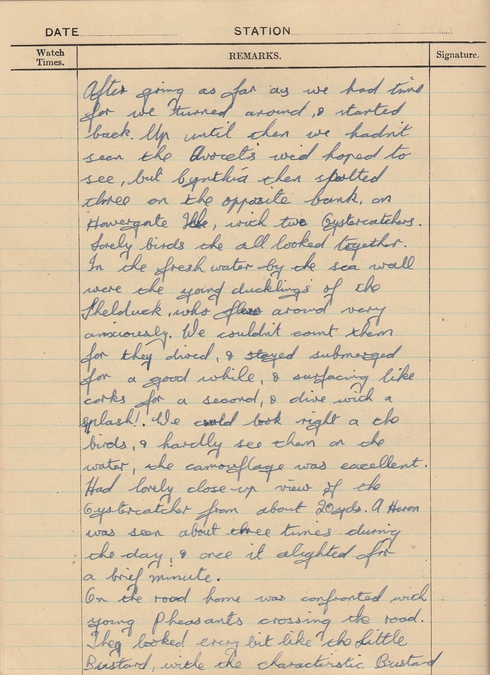 DATE STATION
Watch Times. REMARKS. Signature.
After going as far as we had time
for we turned around, & started
back. Up until then we hadn't
seen the Avocets we'd hoped to
see, but Cynthia then spotted
three on the opposite bank, on
Havergate, with two Oystercatchers.
Lovely birds the all looked together.
In the fresh water by the sea wall
were the young ducklings of the
Shelduck, who flew around very
anxiously. We couldn't count them
for they dived, & stayed submerged
for a good while, & surfacing like
corks for a second, & dive with a
splash!. We could look right a the
birds, & hardly see them on the
water, the camouflage was excellent.
Had lovely close-up view of the
Oystercatcher from about 20yds. A Heron
was seen about three times during
the day, & once it alighted for
a brief minute.
On the road home was confronted with
young Pheasants crossing the road.
They looked every bit like the Little
Bustard, withe the characteristic Bustard